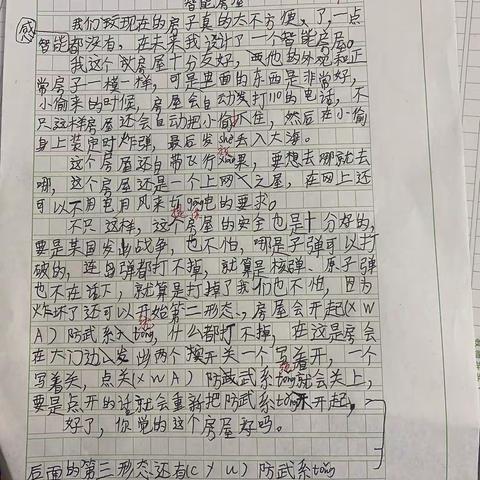 智能房屋
我们致现在的房子真的太不方便,了,一点
智能都没有,在未来我设计了一个智能房屋。
我这个致房屋十分友好,西他的外观和正
常房子一模一样,可是里面的东西是非常好,
小偷来的时候,房屋会自动发打110的电话,不
只这样房屋还会自动把小偷抓住,然后在小偷
身上装定时炸弹,最后发shè丢入大海。
这个房屋还自带飞行xiào果,要想去哪就去
哪,这个房屋还是一个上网人之屋,在网上还
可以不用电用风来的要求。
不只这样,这个房屋的安全也是十分好的,
要是某国发出战争,也不怕,哪是子弹可以打
破的,连弹都打不掉,就算是核弹、原子弹
也不在话下,就算是打掉了我们也不怕,因为
炸坏了还可以开始第二形态、房屋会开起(XW
A)防武系入tǒng,什么都打不掉,在这是房会
在大门边发出两个开关一个写着开,一个
写着关,点关(XWA)防武系tǒng就会关上,
要是点开的话就会重新把防武系tǒng开起,
好了,你觉的这个房屋好吗。
后面的第三形态还有(CYU)防武系tǒng
感